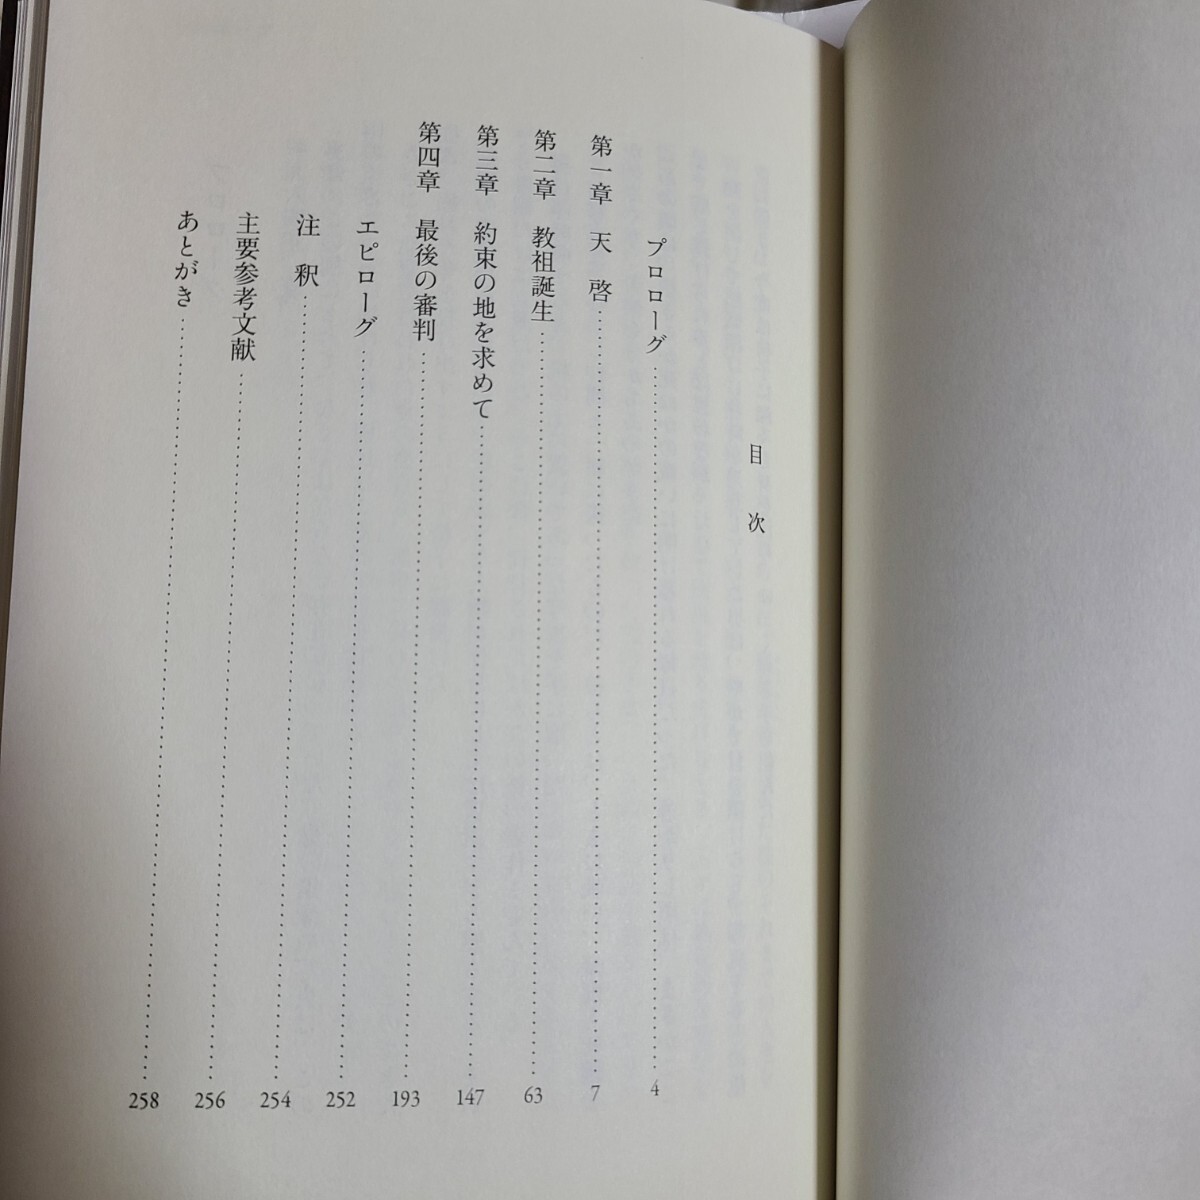 目次
プロローグ 4
第一章 天啓 7
第二章 教祖誕生 63
第三章 約束の地を求めて 147
第四章 最後の審判 193
エピローグ 252
注釈 254
主要参考文献 256
あとがき 258